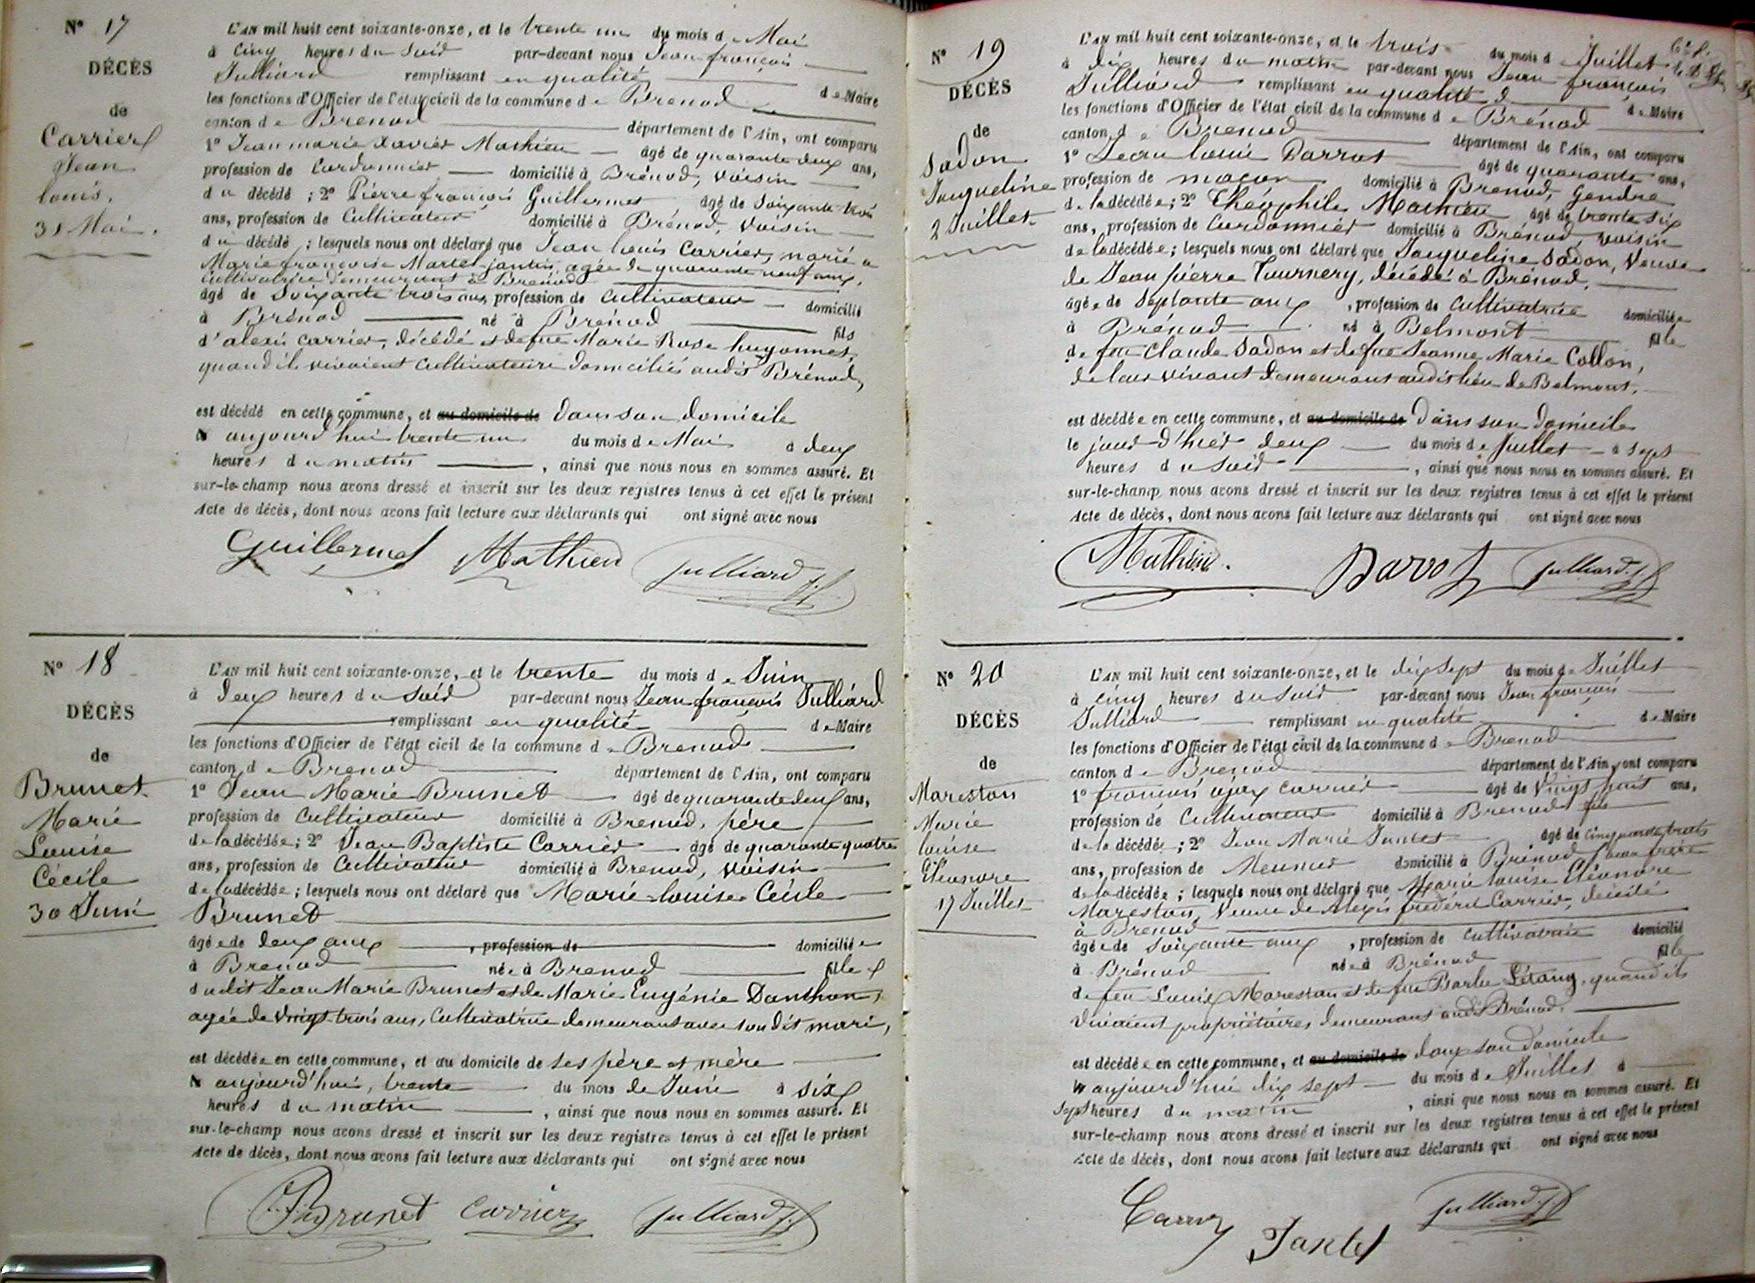 N° 17
DÉCÈS
de
Carrier
Jean
louis.
31 Mai.
L'AN mil huit cent soixante-onze, et le trente un du mois d e Mai
à cinq heures du soir par-devant nous Jean françois
Julliard remplissant en qualité d e Maire
les fonctions d'Officier de l'état civil de la commune d e Brenod
canton d e Brénod département de l'Ain, ont comparu
1° Jean marie Xavier Mathieu âgé de quarante deux ans,
profession de Cordonnier domicilié à Brénod, voisin
d u décédé ; 2° Pierre françois Guillermet âgé de soixante trois
ans, profession de Cultivateur domicilié à Brénod, voisin
d u décédé ; lesquels nous ont déclaré que Jean louis Carrier, marié à
Marie françoise Martel jantin, agée de quarante neuf ans,
cultivatrice demeurant à Brenod
âgé de soixante trois ans, profession de Cultivateur domicilié
à Brénod né à Brénod fils
d'alexis carrier, décédé et de fue Marie Rose huyonnet,
quand ils vivaient cultivateurs domiciliés audit Brénod,
est décédé en cette commune, et au domicile de dans son domicile
aujourd'hui trente un du mois de Mai à deux
heures du matin , ainsi que nous nous en sommes assuré. Et
sur-le-champ nous avons dressé et inscrit sur les deux registres tenus à cet effet le présent
Acte de décès, dont nous avons fait lecture aux déclarants qui ont signé avec nous
Guillermet Mathieu Julliard j.f.
N° 18
DÉCÈS
de
Brunet
Marie
Louise
Cécile
30 Juin
L'AN mil huit cent soixante-onze, et le trente du mois d e Juin
à deux heures du soir par-devant nous Jean françois Julliard
remplissant en qualité d e Maire
les fonctions d'Officier de l'état civil de la commune d e Brenod
canton d e Brenod département de l'Ain, ont comparu
1° Jean Marie Brunet âgé de quarante deux ans,
profession de Cultivateur domicilié à Brenod, père
de la décédée; 2° Jean Baptiste Carrier âgé de quarante quatre
ans, profession de Cultivateur domicilié à Brenod, voisin
de la décédée ; lesquels nous ont déclaré que Marie louise Cécile
Brunet
âgée de deux ans , profession de domiciliée
à Brenod née à Brenod fille
dudit Jean Marie Brunet et de Marie Eugénie Danthon,
agée de vingt trois ans, Cultivatrice demeurant avec son dit mari,
est décédée en cette commune, et au domicile de ses père et mère
aujourd'hui, trente du mois de Juin à six
heures du matin , ainsi que nous nous en sommes assuré. Et
sur-le-champ nous avons dressé et inscrit sur les deux registres tenus à cet effet le présent
Acte de décès, dont nous avons fait lecture aux déclarants qui ont signé avec nous
Brunet Carrier Julliard j.f.
N° 19
DÉCÈS
de
Sadon
Jaqueline
2 Juillet
L'AN mil huit cent soixante-onze, et le trois du mois d e Juillet
à dix heures du matin par-devant nous Jean françois
Julliard remplissant en qualité d e Maire
les fonctions d'Officier de l'état civil de la commune d e Brénod
canton d e Brenod département de l'Ain, ont comparu
1° Jean louis Darrot âgé de quarante ans,
profession de maçon domicilié à Brenod, Gendre
de la décédée; 2° Théophile Mathieu âgé de trente six
ans, profession de Cordonnier domicilié à Brénod, voisin
de la décédée ; lesquels nous ont déclaré que Jaqueline Sadon, Veuve
de Jean pierre Tournery, décédé à Brénod,
âgée de septante ans , profession de cultivatrice domiciliée
à Brénod né à Belmont fille
de feu Claude Sadon et de fue Jeanne Marie Collon,
de leur vivant demeurant audit lieu de Belmont,
est décédée en cette commune, et au domicile de Dans son domicile
le jour d'hier deux du mois de Juillet à sept
heures du soir , ainsi que nous nous en sommes assuré. Et
sur-le-champ nous avons dressé et inscrit sur les deux registres tenus à cet effet le présent
Acte de décès, dont nous avons fait lecture aux déclarants qui ont signé avec nous
Mathieu. Darrot Julliard j.f.
N° 20
DÉCÈS
de
Mareston
Marie
louise
Eléonore
17 Juillet
L'AN mil huit cent soixante-onze, et le dix sept du mois d e Juillet
à cinq heures du soir par-devant nous Jean françois
Julliard remplissant en qualité d e Maire
les fonctions d'Officier de l'état civil de la commune d e Brenod
canton d e Brenod département de l'Ain, ont comparu
1° françois ajax carrier âgé de Vingt huit ans,
profession de Cultivateur domicilié à Brenod fils
de la décédée ; 2° Jean Marie Jantet âgé de cinquante trois
ans, profession de Meunier domicilié à Brénod, beau frère
de la décédée ; lesquels nous ont déclaré que Marie louise Eléonore
Mareston, Veuve de Alexis frédéric Carrier, décédé
à Brenod
âgée de soixante ans , profession de cultivatrice domicilié
à Brénod née à Brénod fille
de feu Louis Mareston et de fue Barbe Létang, quand ils
vivaient propriétaires demeurant audit Brénod.
est décédée en cette commune, et au domicile de dans son domicile
aujourd'hui dix sept du mois de Juillet à
sept heures du matin , ainsi que nous nous en sommes assuré. Et
sur-le-champ nous avons dressé et inscrit sur les deux registres tenus à cet effet le présent
Acte de décès, dont nous avons fait lecture aux déclarants qui ont signé avec nous
Carrier Jantet Julliard j.f.